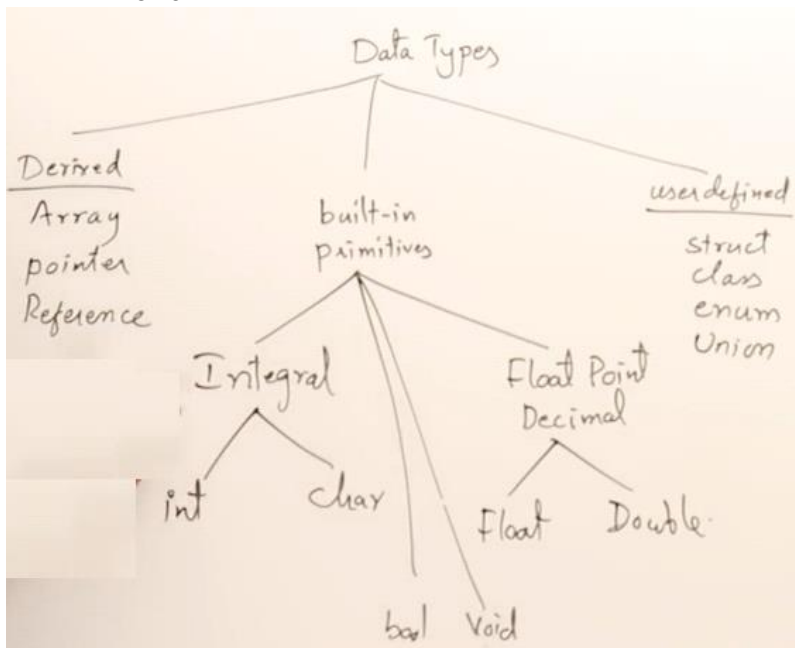 Data Types
Derived
Array
pointer
Reference
built-in
primitives
userdefined
struct
class
enum
Union
Integral
int
char
Float Point
Decimal
Float
Double.
bool
Void